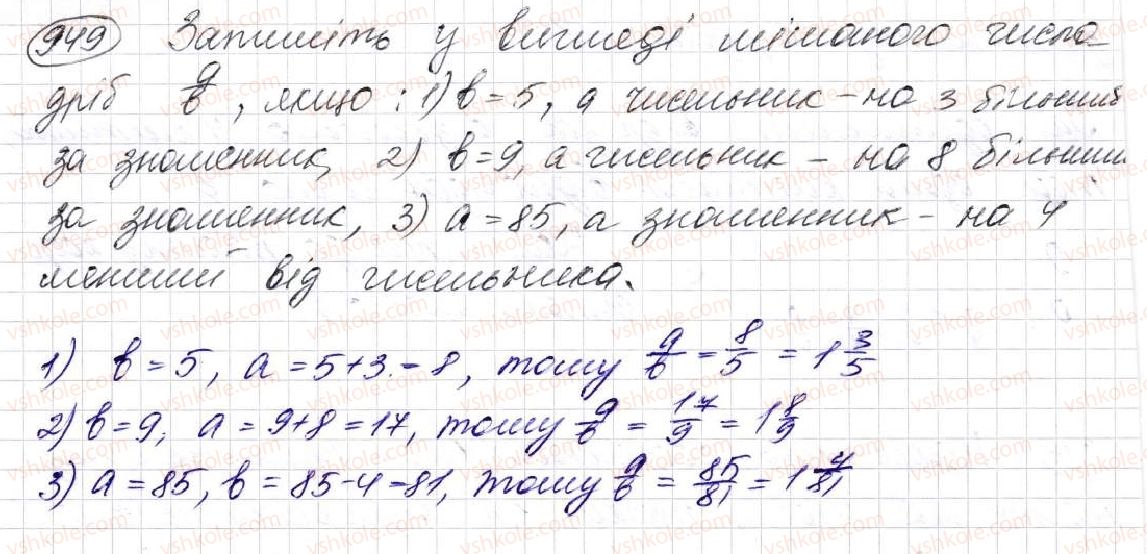 949 Запишіть у вигляді мішаного числа
дріб a/b, якщо: 1) b = 5, а чисельник – на 3 більший
за знаменник, 2) b = 9, а чисельник – на 8 більший
за знаменник, 3) a = 85, а знаменник – на 4
менший від чисельника.
1) b = 5, a = 5 + 3 = 8, тому a/b = 8/5 = 1 3/5
2) b = 9; a = 9 + 8 = 17, тому a/b = 17/9 = 1 8/9
3) a = 85, b = 85 - 4 = 81, тому a/b = 85/81 = 1 4/81